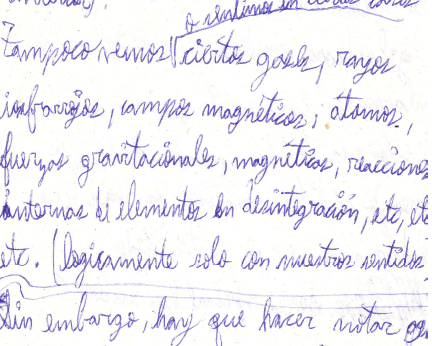 o sentimos en
Tampoco vemos ciertos gases, rayos
infrarrojos, campos magnéticos, átomos,
fuerzas gravitacionales, magnéticas, reacciones
internas de elementos en desintegración, etc, etc
etc. (logicamente solo con nuestros sentidos
Sin embargo, hay que hacer notar que